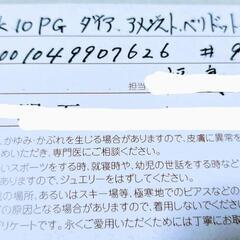 K10PG ダイア.アメジスト.ペリドット
001049907626 #9
担当
、かゆみ・かぶれを生じる場合がありますので、皮膚に異常を
めいただき、専門医にご相談ください。
いスポーツをする時、就寝時や、幼児の世話をする時など
ので、ジュエリーをはずしてください。
場所、あるいはスキー場等、極寒地でのピアスなどの
の原因となる場合がありますので、着用しないでください
リケートです。永くご愛用いただくためには丁寧にお取